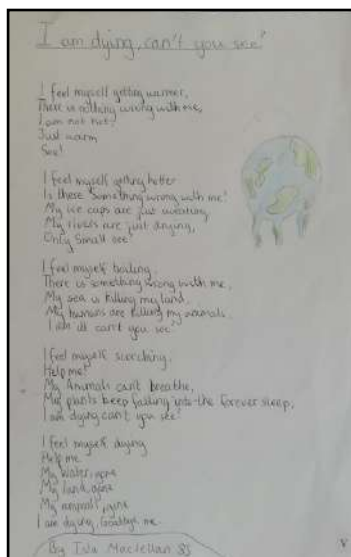 I am dying, can't you see?
I feel myself getting warmer,
There is nothing wrong with me,
I am not hot!
Just warm
See!
I feel myself getting hotter
Is there something wrong with me?
My ice caps are just sweating,
My rivers are just drying,
Only small see!
I feel myself boiling,
There is something wrong with me,
My sea is killing my land,
My humans are killing my animals,
I am ill can't you see
I feel myself scorching,
Help me!
My Animals can't breathe,
My plants keep falling into the forever sleep,
I am dying can't you see!
I feel myself dying
Help me
My water, gone
My land, gone
My animals, gone
I am dying, Goodbye me.
By Isla Maclellan S3